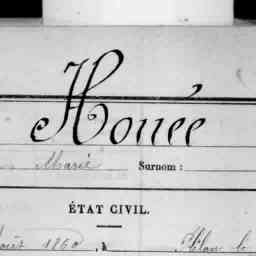 Houée
Marie Surnom :
ÉTAT CIVIL.
août 1860, à